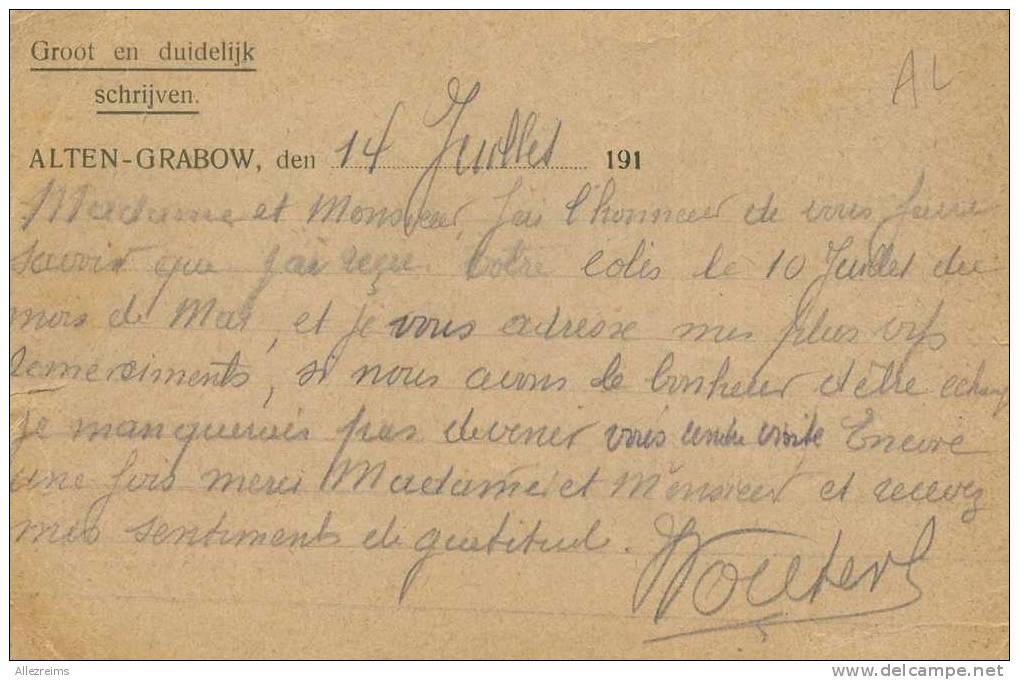 Groot en duidelijk
schrijven.
AL
ALTEN-GRABOW, den 14 Juillet 191
Madame et Monsieur, j'ai l'honneur de vous faire
savoir que j'ai reçu votre colis le 10 Juillet du
mois de Mai, et je vous adresse mes plus vifs
remerciments, si nous avons le bonheur d'être échang
je manquerais pas de venir vous rendre visite Encore
une fois merci Madame et Monsieur et recevez
mes sentiments de gratitude.
Wouters
Allezreims
www.delcampe.net